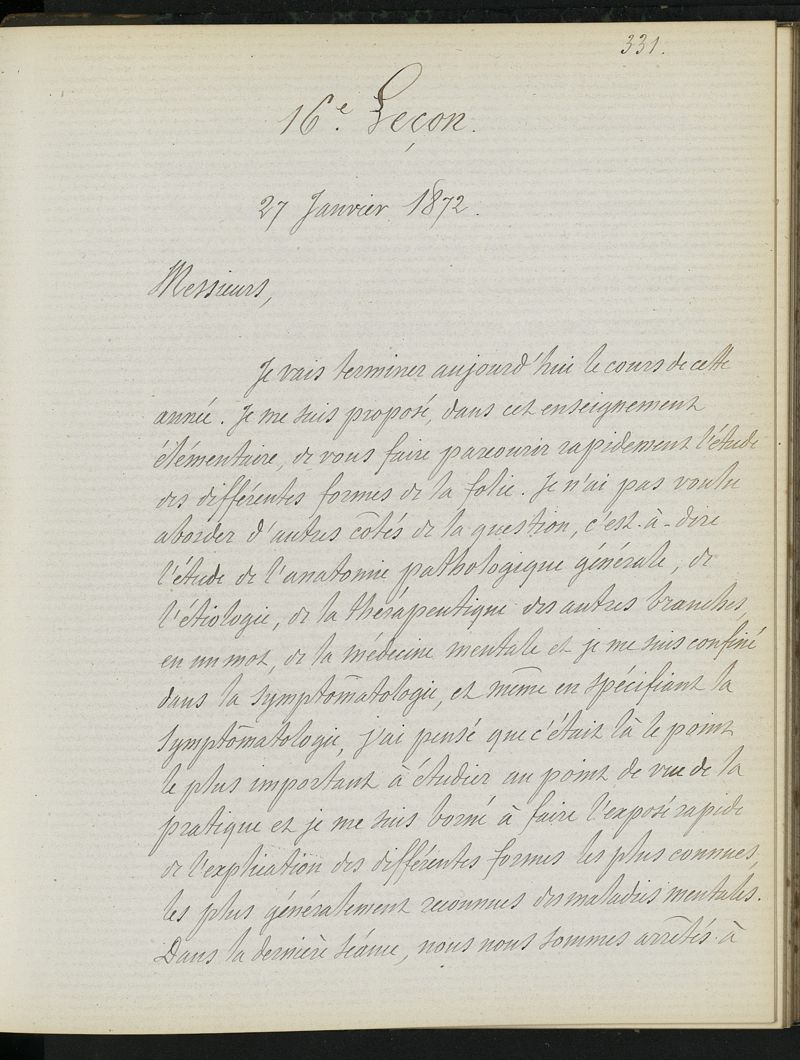 331.
16e. Leçon.
27 Janvier 1872.
Messieurs,
Je vais terminer aujourd'hui le cours de cette
année. Je me suis proposé, dans cet enseignement
élémentaire, de vous faire parcourir rapidement l'étude
des différentes formes de la folie. Je n'ai pas voulu
aborder d'autres côtés de la question, c'est-à-dire
l'étude de l'anatomie pathologique générale, de
l'étiologie, de la thérapeutique des autres branches,
en un mot, de la médecine mentale et je me suis confiné
dans la symptômatologie, et même en spécifiant la
symptômatologie, j'ai pensé que c'était là le point
le plus important à étudier au point de vue de la
pratique et je me suis borné à faire l'exposé rapide
de l'explication des différentes formes les plus connues,
les plus généralement reconnues des maladies mentales.
Dans la dernière séance, nous nous sommes arrêtés à